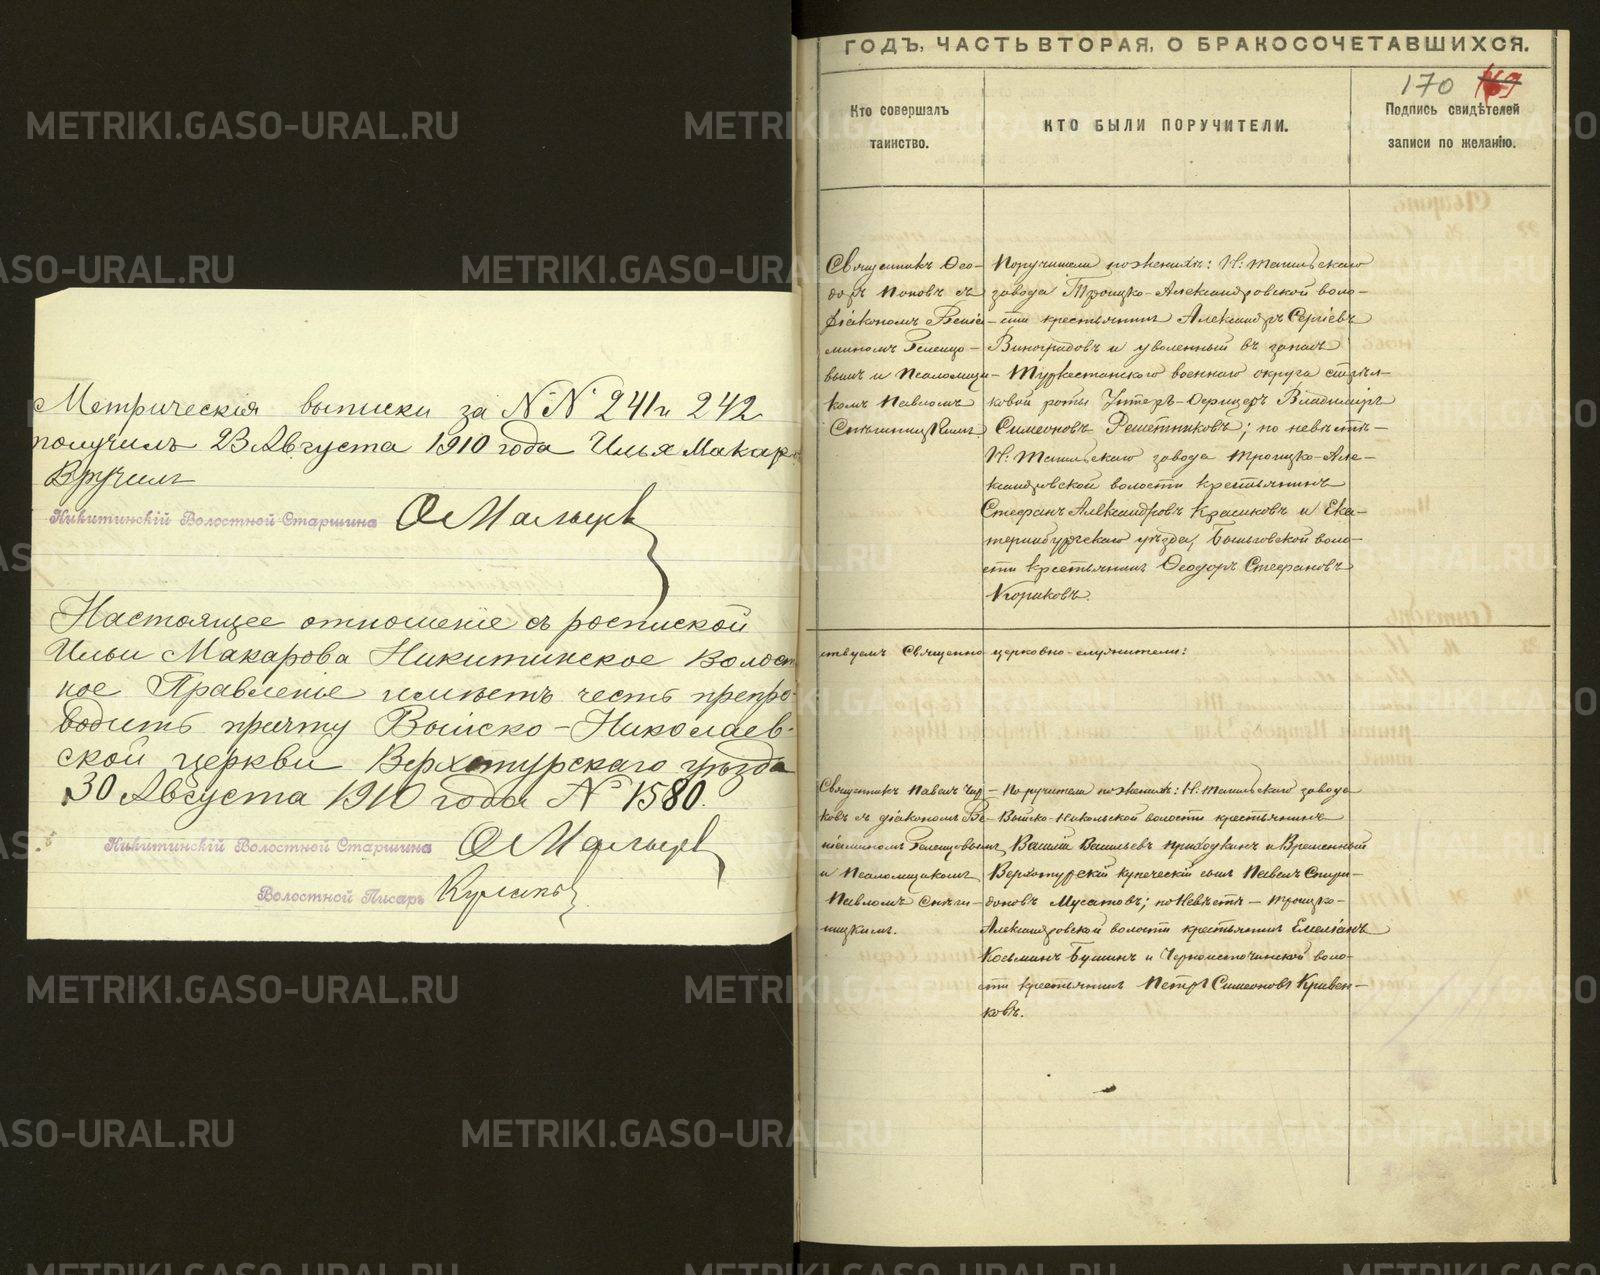 Метрическія выписки за №№ 241 и 242
получилъ 23 Августа 1910 года Илья Макаро
Вручилъ
Никитинскій Волостной Старшина
Настоящее отношеніе съ роспиской
Ильи Макарова Никитинское Волост
ное Правленіе имѣетъ честь препро-
водить причту Выйско-Николаев-
ской церкви Верхотурскаго уѣзда
30 Августа 1910 года № 1580.
Никитинскій Волостной Старшина
Волостной Писарь
ГОДЪ, ЧАСТЬ ВТОРАЯ, О БРАКОСОЧЕТАВШИХСЯ.
170 169
Кто совершалъ
таинство.
КТО БЫЛИ ПОРУЧИТЕЛИ.
Подпись свидѣтелей
записи по желанію.
Священникъ Ѳео-
доръ Поповъ съ
діакономъ Веніа
миномъ Гелецо-
вымъ и Псаломщи-
комъ Павломъ
Снѣгиницкимъ.
Поручители по женихѣ: Н: Тагильскаго
завода Троицко-Александровской воло-
сти крестьянинъ Александръ Сергіевъ
Виноградовъ и уволенный въ запасъ
Туркестанскаго военнаго округа стрѣл-
ковой роты Унтеръ-Офицеръ Владиміръ
Симеоновъ Решетниковъ; по невѣстѣ
Н: Тагильскаго завода Троицко-Але-
ксандровской волости крестьянинъ
Стефанъ Александровъ Красиковъ и Ека-
теринбургскаго уѣзда, волос-
сти крестьянинъ Ѳеодоръ Стефановъ
Кориковъ.
ствуемъ Священно церковно-служители:
Священникъ Павелъ
ковъ съ діакономъ Ве-
ніаминомъ Гелецовымъ
и Псаломщикомъ
Павломъ Снѣги-
ницкимъ.
Поручители по женихѣ: Н. Тагильскаго завода
Выйско-Никольской волости крестьянинъ
Василій Васильевъ Приходкинъ и Временный
Верхотурскій купеческій сынъ Павелъ Спири-
доновъ Мусатовъ; по Невѣстѣ - Троицко-
Александровской волости крестьянинъ Емеліанъ
Косьминъ Бушинъ и Черноисточинской воло-
сти крестьянинъ Петръ Симеоновъ Кривен-
ковъ.